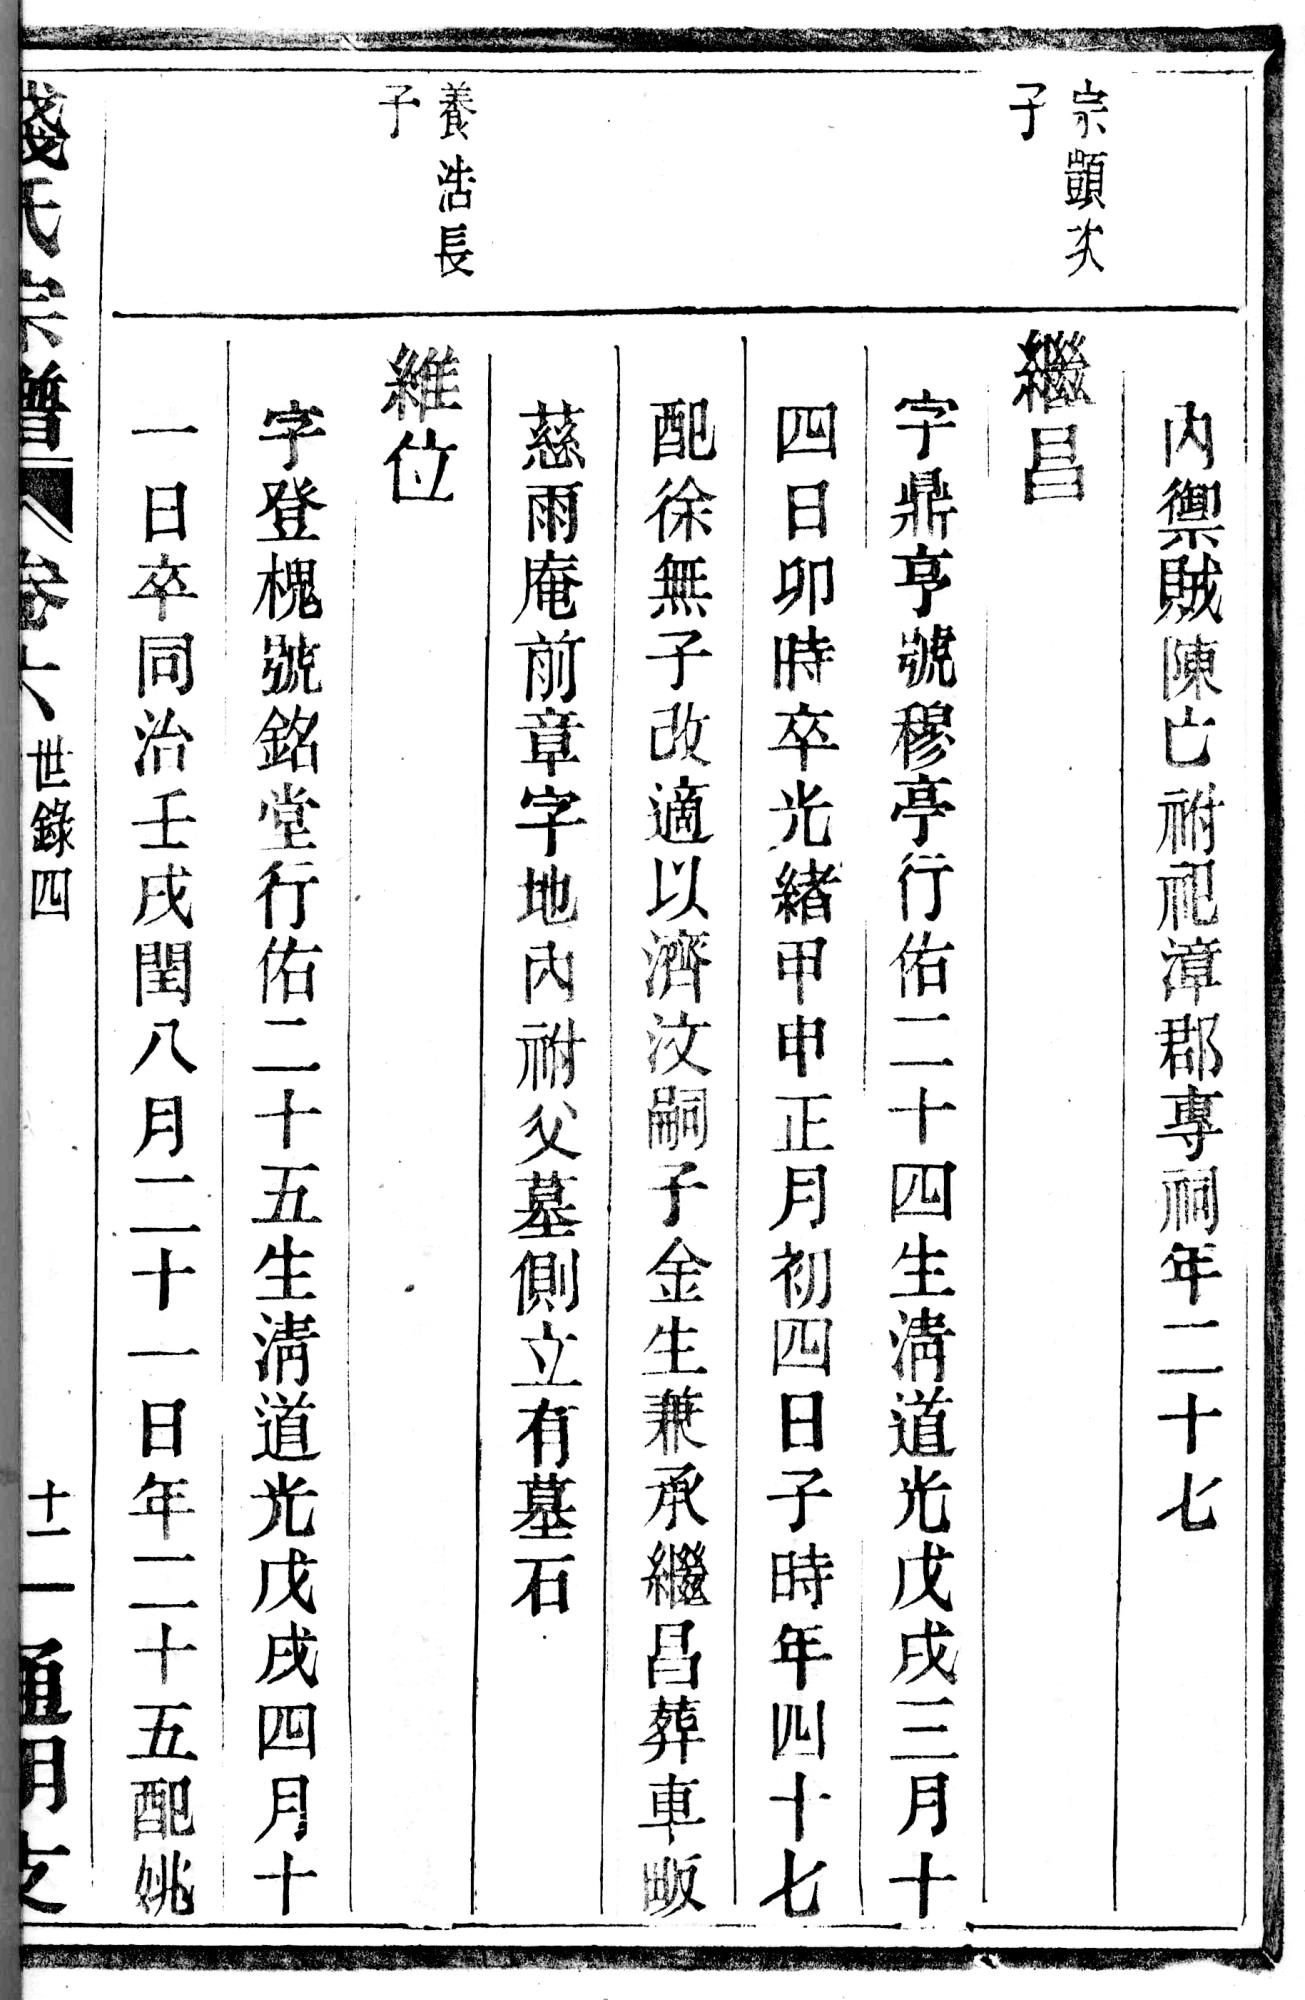 內禦賊陳亡祔祀漳郡專祠年二十七
宗顗次
子
繼昌
字鼎亨號穆亭行佑二十四生淸道光戊戌三月十
四日卯時卒光緖甲申正月初四日子時年四十七
配徐無子改適以濟汶嗣子金生兼承繼昌葬車畈
慈雨庵前章字地內祔父墓側立有墓石
養浩長
子
維位
字登槐號銘堂行佑二十五生淸道光戊戌四月十
一日卒同治壬戌閏八月二十一日年二十五配姚
錢氏宗譜
卷六
世錄四
十一
通明支